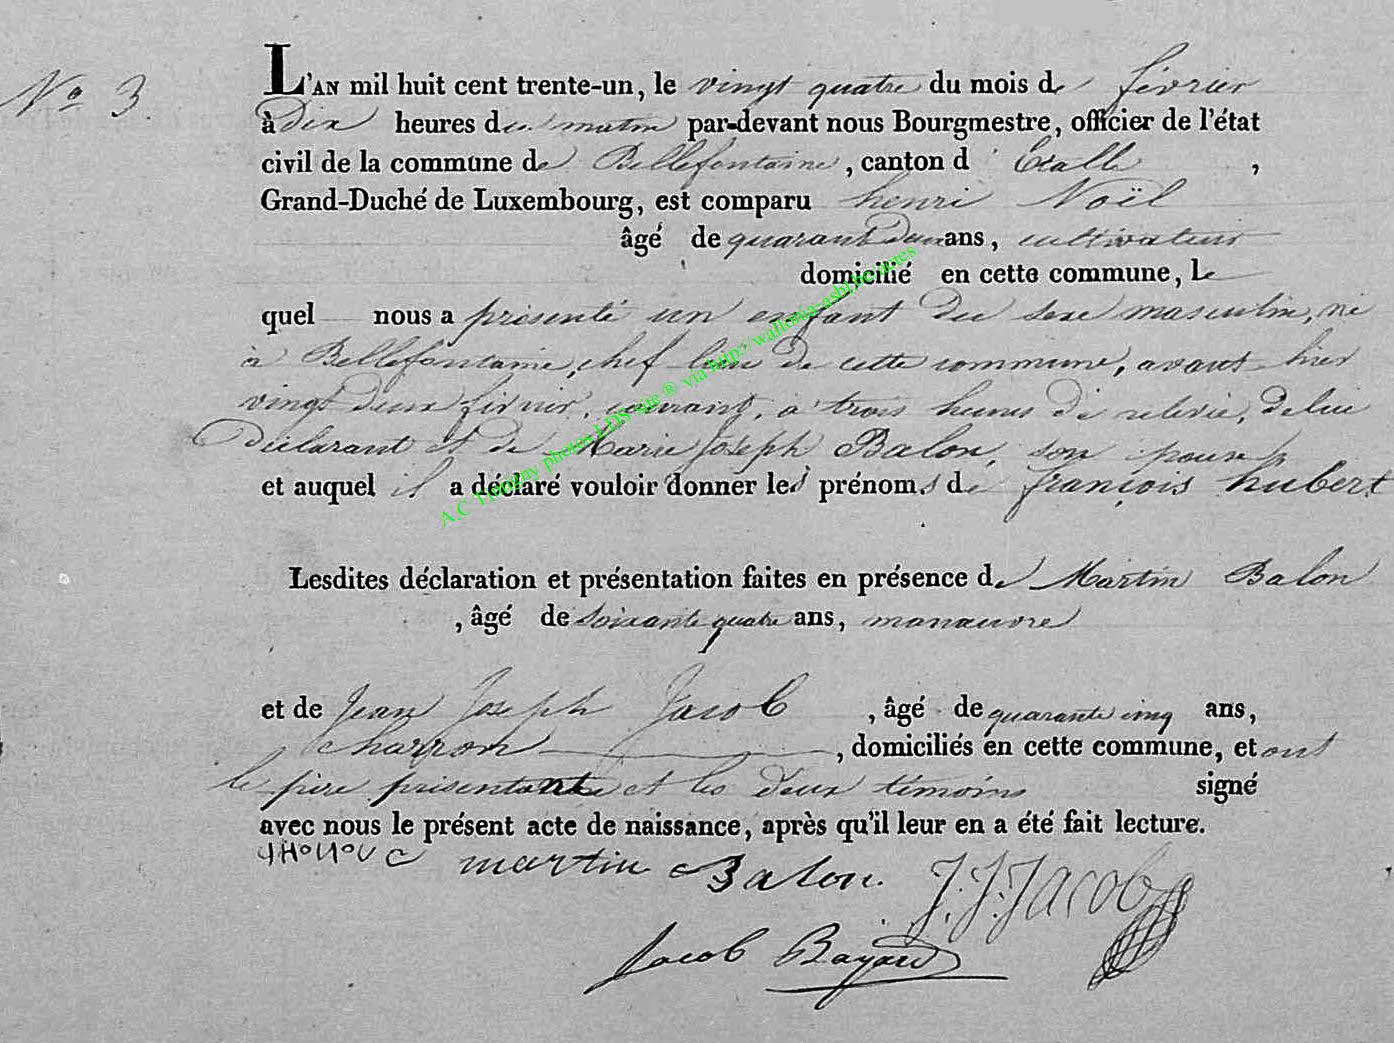 N.o 3.
L'AN mil huit cent trente-un, le vingt quatre du mois de février
à dix heures du matin par-devant nous Bourgmestre, officier de l'état
civil de la commune de Bellefontaine, canton d'Etalle,
Grand-Duché de Luxembourg, est comparu henri Noël
âgé de quarante deux ans, cultivateur
domicilié en cette commune, Le
quel nous a présenté un enfant du sexe masculin, né
à Bellefontaine, chef lieu de cette commune, avant hier
vingt deux février, courant, à trois heures de relevée, de lui
déclarant et de Marie Joseph Balon, son épouse
et auquel il a déclaré vouloir donner les prénoms de françois hubert
Lesdites déclaration et présentation faites en présence de Martin Balon
, âgé de soixante quatre ans, manœuvre
et de Jean Joseph Jacob, âgé de quarante cinq ans,
charron, domiciliés en cette commune, et ont
le père présentant et les deux témoins signé
avec nous le présent acte de naissance, après qu'il leur en a été fait lecture.
martin Balon. J.J. Jacob
Jacob Bayard
A.C Tintigny photos LDS site ® via http://wallonia-asbl.be/actes